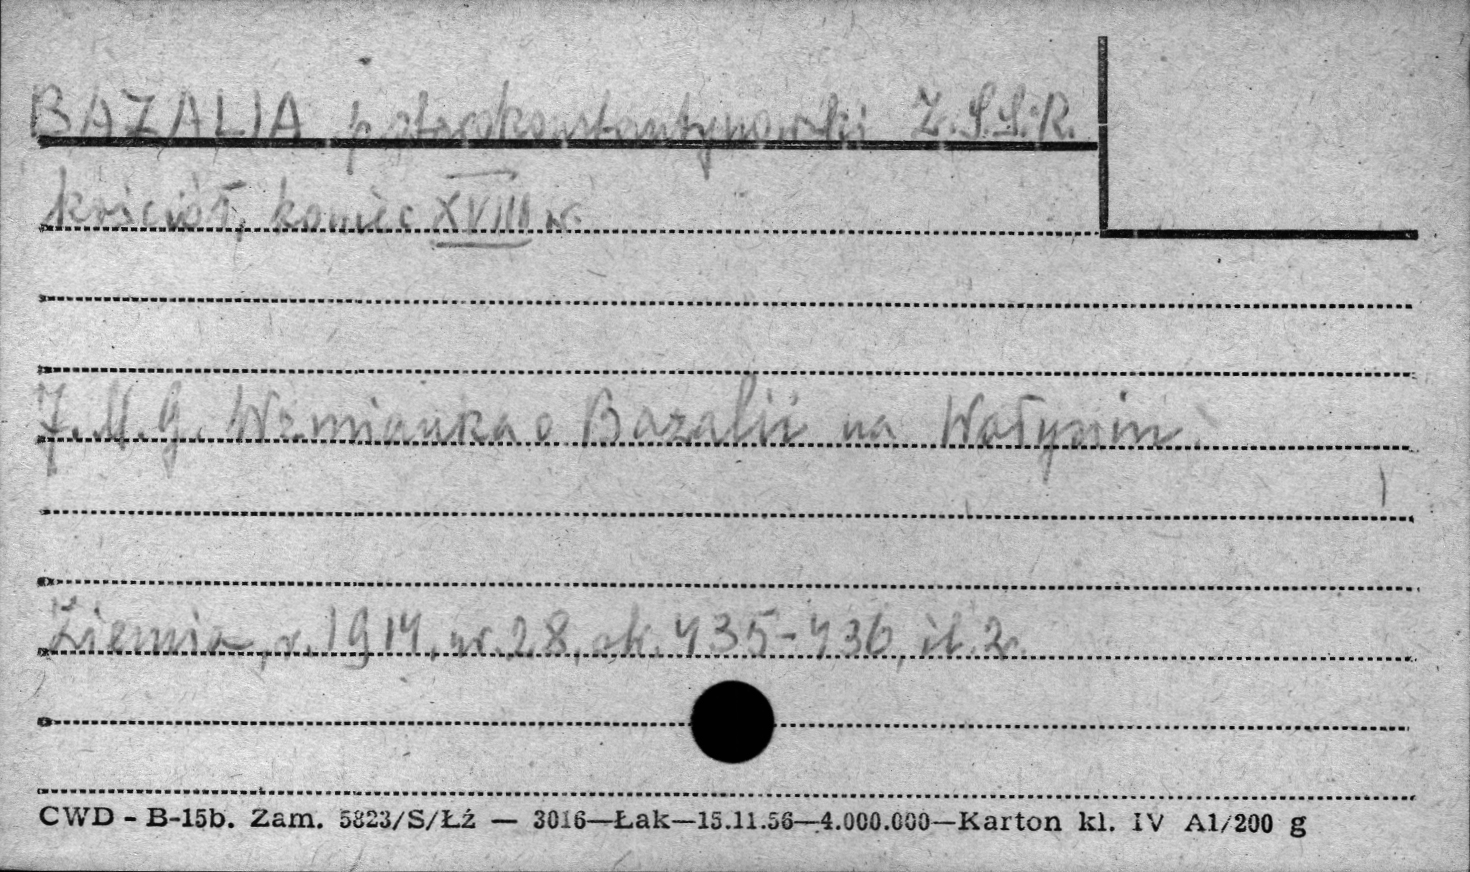 BAZALIA p. starokonstantynowski Z.S.S.R.
kościół, koniec XVIII w.
J. M. G. Wzmianka o Bazalii na Wołyniu.
Ziemia, r. 1914, nr. 28, sk. 435-436, il. 2.
CWD - B-15b. Zam. 5823/S/Łź — 3016—Łak—15.11.56—4.000.000—Karton kl. IV A1/200 g